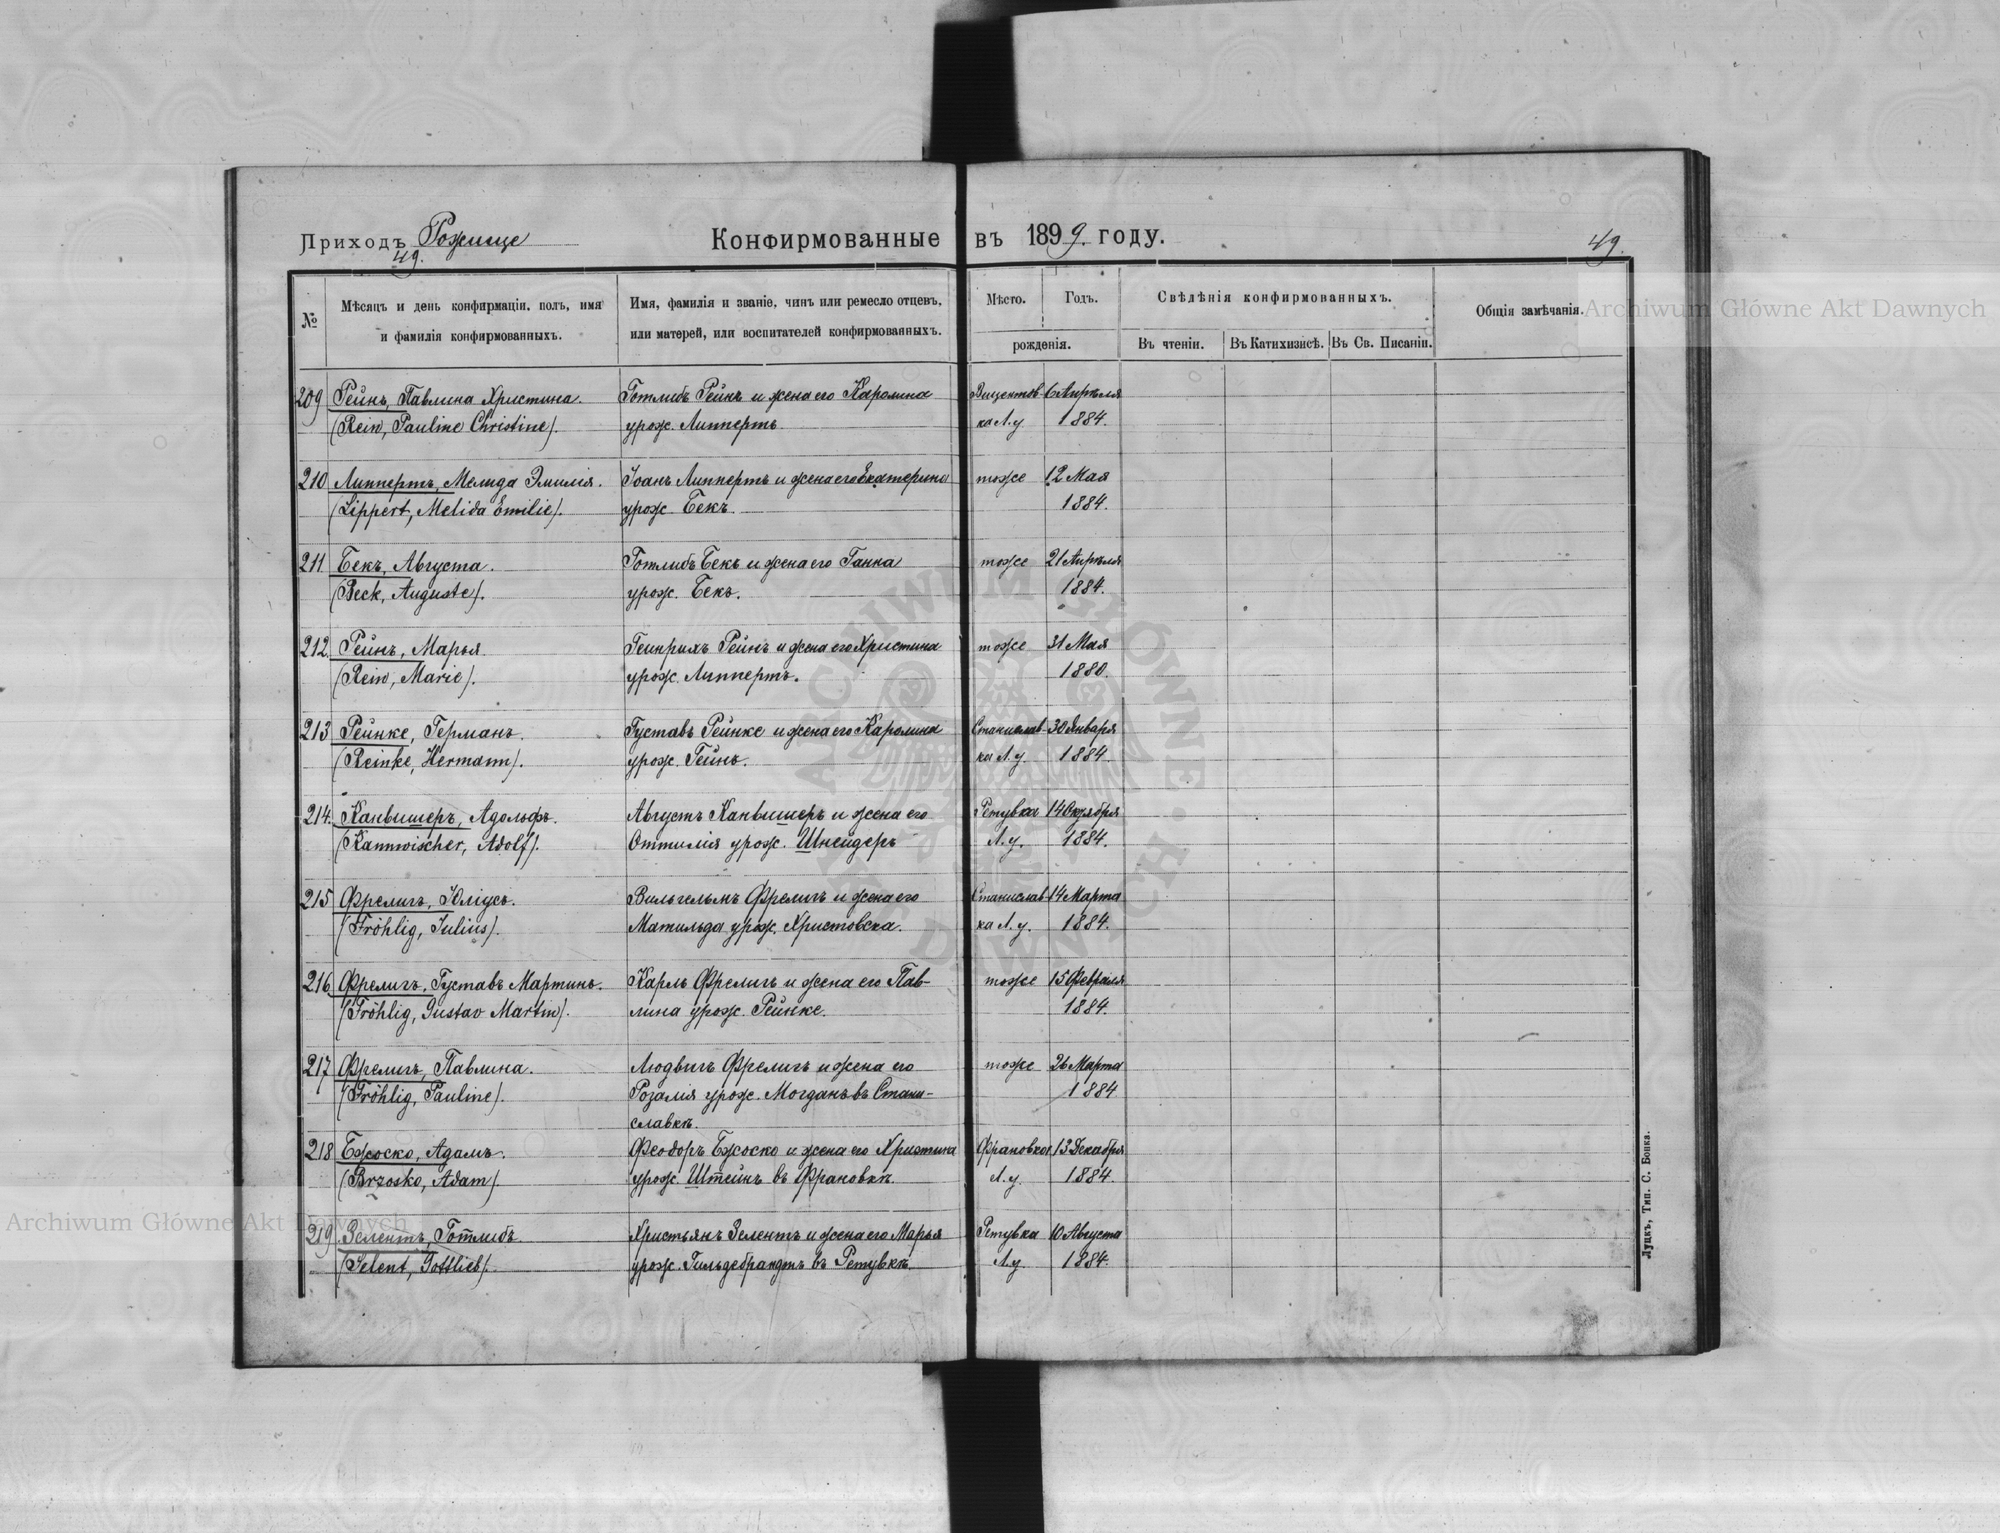 Приходъ Рожище
49.
Конфирмованные въ 1899. году.
49.
№
Мѣсяцъ и день конфирмаціи, полъ, имя
и фамилія конфирмованныхъ.
Имя, фамилія и званіе, чинъ или ремесло отцевъ,
или матерей, или воспитателей конфирмованныхъ.
Мѣсто. Годъ.
рожденія.
Свѣдѣнія конфирмованныхъ.
Въ чтеніи. Въ Катихизисѣ. Въ Св. Писаніи.
Общія замѣчанія.
209 Рейнъ, Павлина Христина. Готлибъ Рейнъ и жена его Каролина Вицентов- 6 Апрѣля
(Rein, Pauline Christine). урож. Липпертъ ка Л. у 1884.
210 Липпертъ, Мелида Эмилія. Іоанъ Липпертъ и жена его Екатерина тоже 12 Мая
(Lippert, Melida Emilie). урож. Бекъ. 1884.
211 Бекъ, Августа. Готлибъ Бекъ и жена его Ганна тоже 21 Апрѣля
(Beck, Auguste). урож. Бекъ. 1884.
212 Рейнъ, Марья Генрихъ Рейнъ и жена его Христина тоже 31 Мая
(Rein, Marie). урож. Липпертъ. 1880.
213 Рейнке, Германъ. Густавъ Рейнке и жена его Каролина Станислав- 30 Января
(Reinke, Hermann). урож. Рейнъ. ка Л. у. 1884.
214. Канвишеръ, Адольфъ. Августъ Канвишеръ и жена его Ретувка 14 Октября
(Kannwischer, Adolf). Оттилія урож. Шнейдеръ Л. у. 1884.
215 Фрелигъ, Юліусъ. Вильгельмъ Фрелигъ и жена его Станислав- 14 Марта
(Fröhlig, Julius). Матильда урож. Христовска. ка Л. у. 1884.
216 Фрелигъ, Густавъ Мартинъ. Карлъ Фрелигъ и жена его Пав- тоже 15 Февраля
(Fröhlig, Gustav Martin). лина урож. Рейнке. 1884.
217 Фрелигъ, Павлина. Людвигъ Фрелигъ и жена его тоже 26 Марта
(Fröhlig, Pauline). Розалія урож. Могданъ въ Стани- 1884
славкѣ.
218 Бжоско, Адамъ. Феодоръ Бжоско и жена его Христина Франовка 13 Декабря
(Brzosko, Adam) урож. Штейнъ въ Франовкѣ. Л. у. 1884.
219 Зелентъ, Готлибъ. Христьянъ Зелентъ и жена его Марья Ретувка 10 Августа
(Selent, Gottlieb). урож. Гильдебрандтъ въ Ретувкѣ. Л. у. 1884.
Луцкъ, Тип. С. Бонка.
Archiwum Główne Akt Dawnych
Archiwum Główne Akt Dawnych
ARCHIWUM GŁÓWNE AKT DAWNYCH